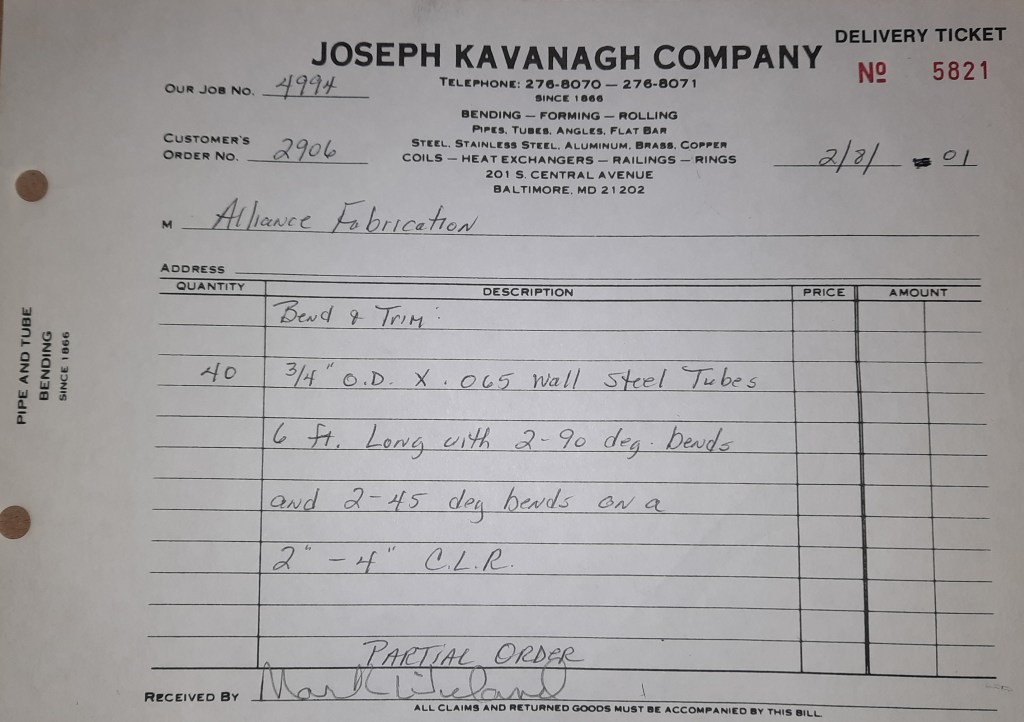 DELIVERY TICKET
JOSEPH KAVANAGH COMPANY
Nº 5821
OUR JOB NO. 4994
TELEPHONE: 276-8070 — 276-8071
SINCE 1866
BENDING — FORMING — ROLLING
PIPES, TUBES, ANGLES, FLAT BAR
CUSTOMER'S
ORDER NO. 2906
STEEL, STAINLESS STEEL, ALUMINUM, BRASS, COPPER
COILS — HEAT EXCHANGERS — RAILINGS — RINGS
2/8/ 01
201 S. CENTRAL AVENUE
BALTIMORE, MD 21202
M Alliance Fabrication
ADDRESS
QUANTITY DESCRIPTION PRICE AMOUNT
Bend & Trim:
40 3/4" O.D. X .065 Wall Steel Tubes
6 ft. Long with 2-90 deg. bends
and 2-45 deg bends on a
2" - 4" C.L.R.
PARTIAL ORDER
RECEIVED BY Mark Wieland
ALL CLAIMS AND RETURNED GOODS MUST BE ACCOMPANIED BY THIS BILL
PIPE AND TUBE
BENDING
SINCE 1866